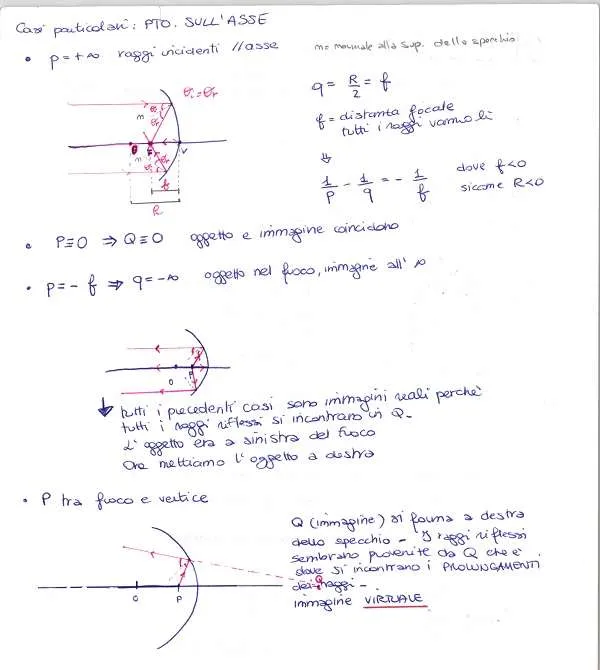 Casi particolari: PTO. SULL'ASSE
• p=+∞ raggi incidenti //asse
m= normale alla sup. dello specchio
θi=θr
q = R/2 = f
f = distanza focale
tutti i raggi vanno lì
⇓
1/p - 1/q = - 1/f dove f<0
siccome R<0
m
θi
θr
O
F
V
m
θi
θr
f
R
• P≡O ⇒ Q≡O oggetto e immagine coincidono
• p=-f ⇒ q=-∞ oggetto nel fuoco, immagine all'∞
O
P
tutti i precedenti casi sono immagini reali perchè
tutti i raggi riflessi si incontrano in Q.
L'oggetto era a sinistra del fuoco
Ora mettiamo l'oggetto a destra
• P tra fuoco e vertice
Q (immagine) si forma a destra
dello specchio - I raggi riflessi
sembrano provenire da Q che è
dove si incontrano i PROLUNGAMENTI
dei raggi -
immagine VIRTUALE
O
P
Q